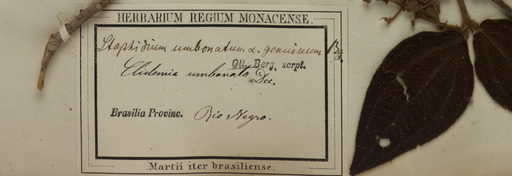 HERBARIUM REGIUM MONACENSE.
Staphidium umbonatum α. genuinum Brg
Ott. Berg. scrpt.
Clidemia umbonata DC.
Brasilia Provinc. Rio Negro.
Martii iter brasiliense.